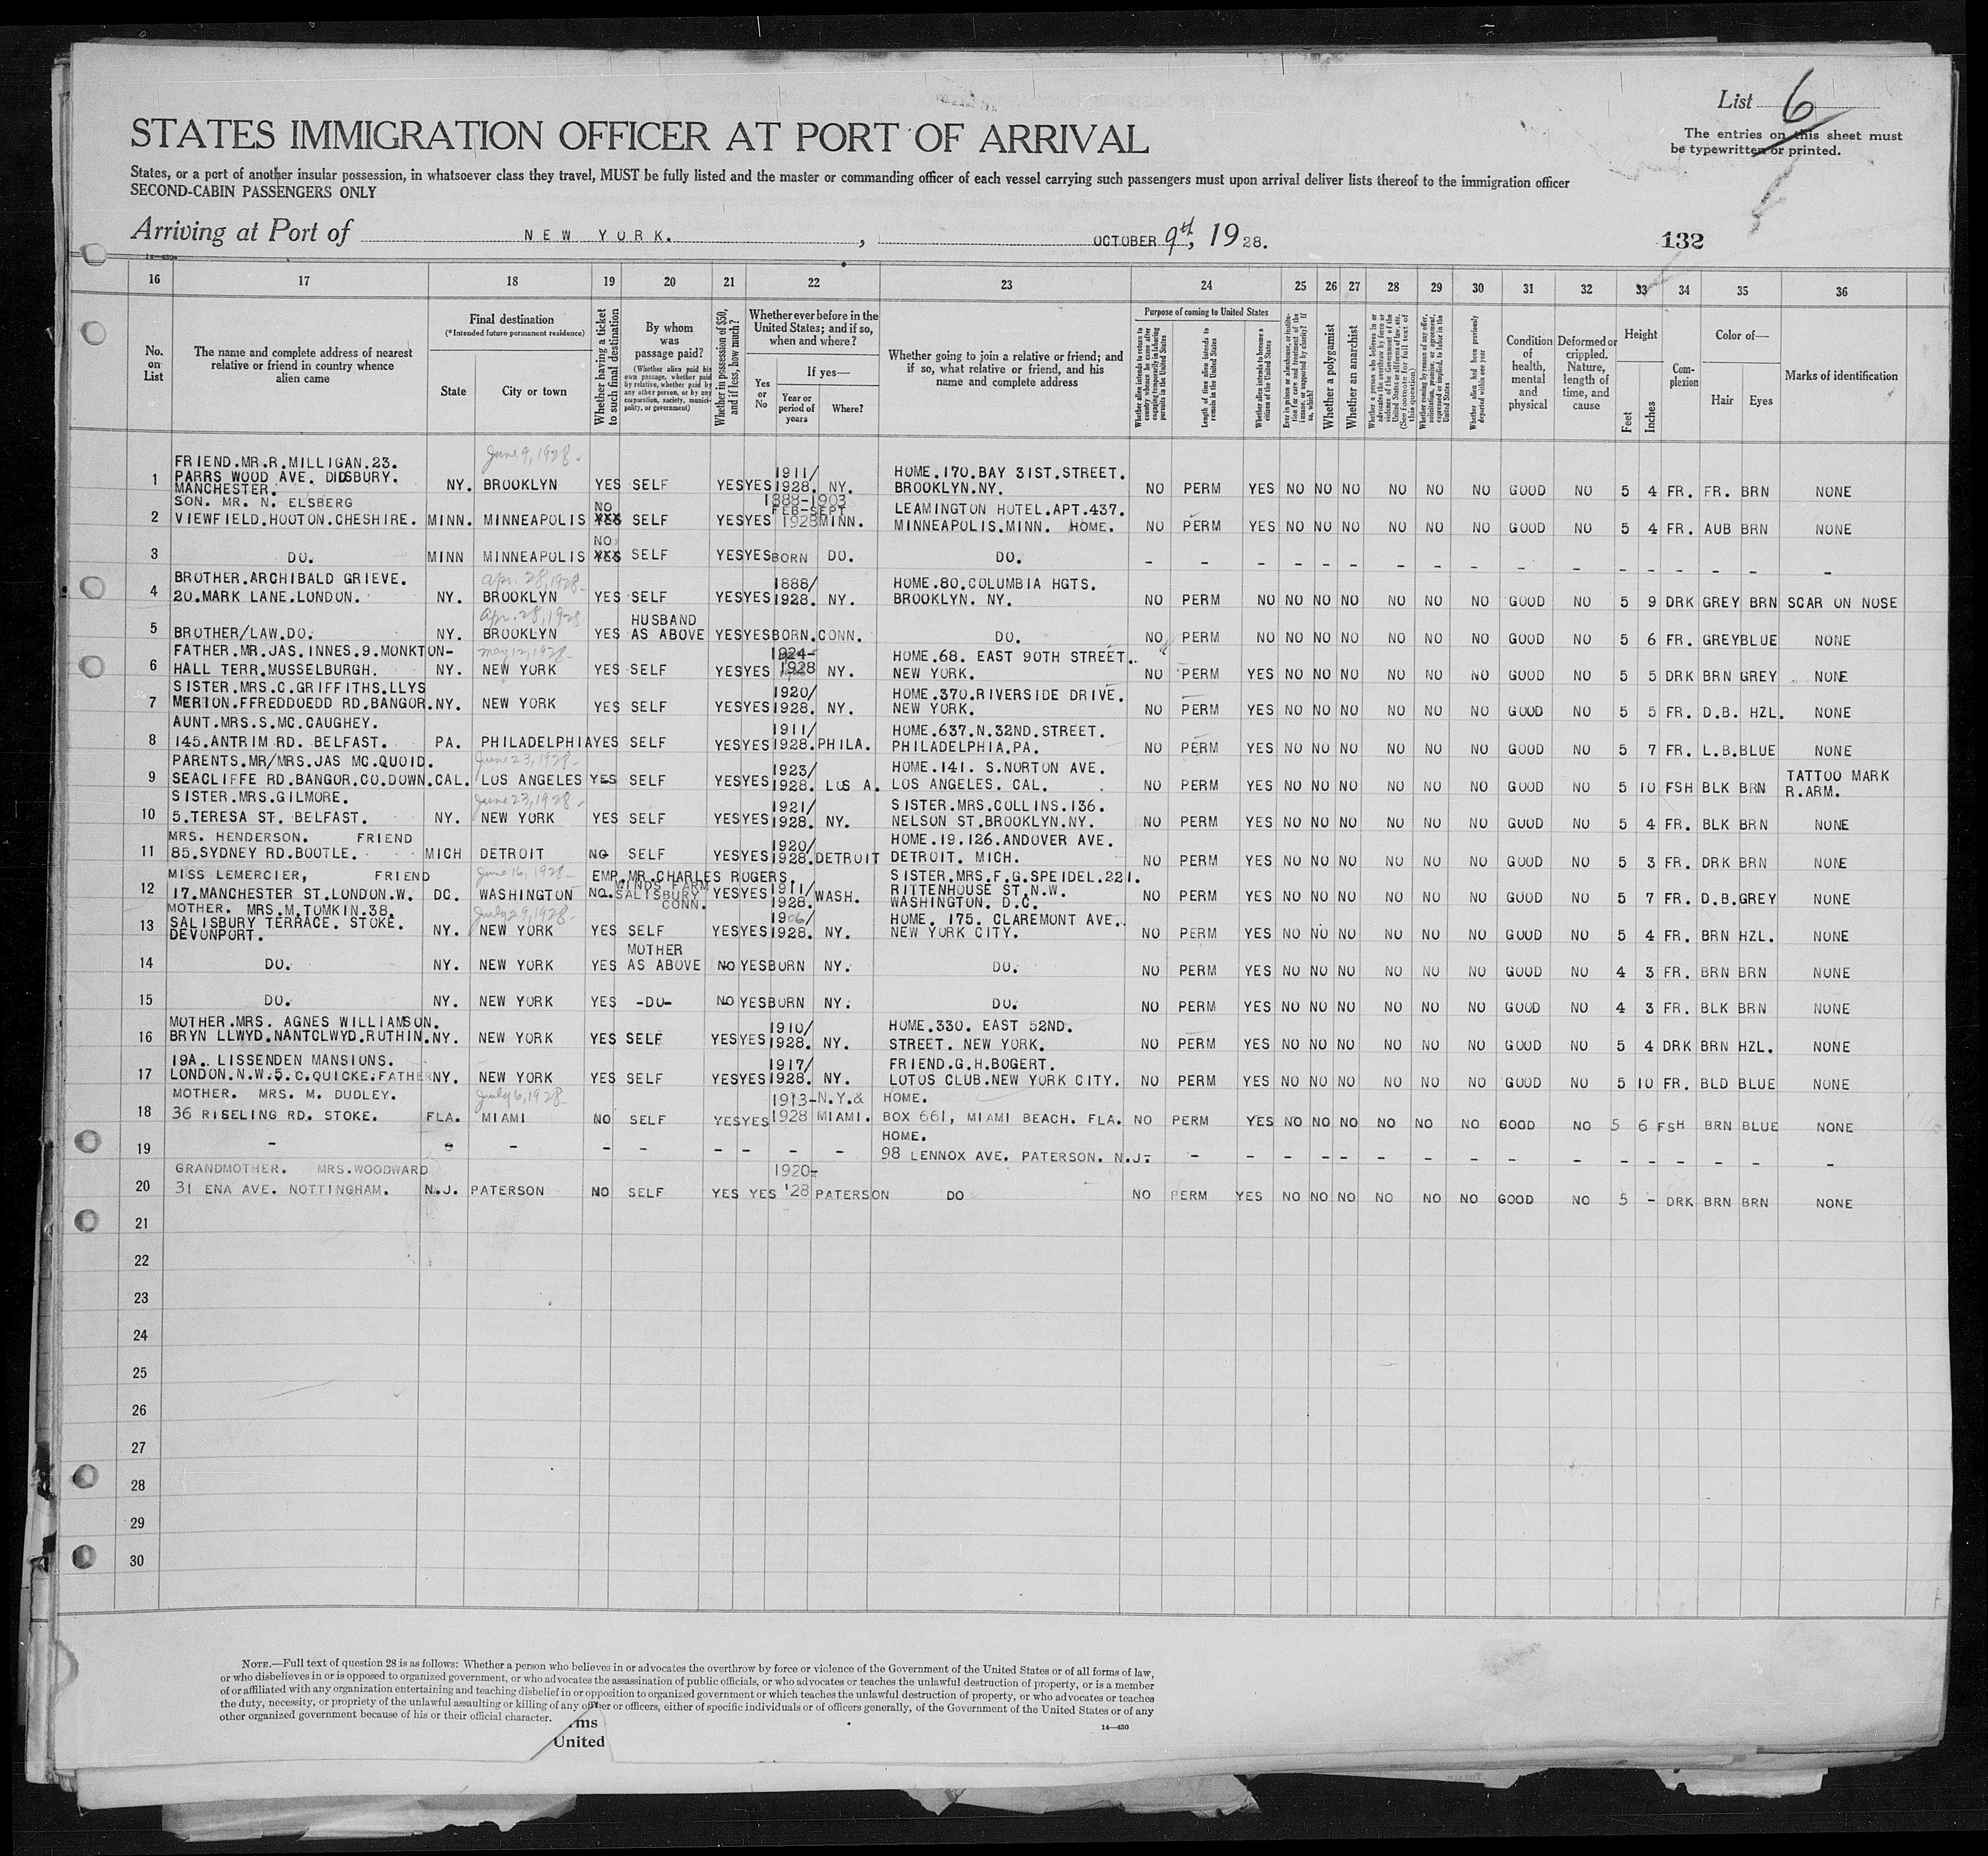 List 6
The entries on this sheet must
be typewritten or printed.
STATES IMMIGRATION OFFICER AT PORT OF ARRIVAL
States, or a port of another insular possession, in whatsoever class they travel, MUST be fully listed and the master or commanding officer of each vessel carrying such passengers must upon arrival deliver lists thereof to the immigration officer
SECOND-CABIN PASSENGERS ONLY
Arriving at Port of NEW YORK. , OCTOBER 9th, 1928.
132
16 17 18 19 20 21 22 23 24 25 26 27 28 29 30 31 32 33 34 35 36
No. on List
The name and complete address of nearest relative or friend in country whence alien came
Final destination
(*Intended future permanent residence)
State
City or town
Whether having a ticket to such final destination
By whom was passage paid?
(Whether alien paid his own passage, whether paid by relative, whether paid by any other person, or by any corporation, society, municipality, or government)
Whether in possession of $50, and if less, how much?
Whether ever before in the United States; and if so, when and where?
Yes or No
If yes—
Year or period of years
Where?
Whether going to join a relative or friend; and if so, what relative or friend, and his name and complete address
Purpose of coming to United States
Length of time alien intends to remain in the United States
Whether alien intends to become a citizen of the United States
Whether a polygamist
Whether an anarchist
Condition of health, mental and physical
Deformed or crippled. Nature, length of time, and cause
Height
Feet
Inches
Complexion
Color of—
Hair Eyes
Marks of identification
June 9, 1928
1 FRIEND.MR.R.MILLIGAN.23. PARRS WOOD AVE. DIDSBURY. MANCHESTER. NY. BROOKLYN YES SELF YES YES 1911/1928. NY. HOME.170.BAY 31ST.STREET. BROOKLYN.NY. NO PERM YES NO NO NO NO NO NO GOOD NO 5 4 FR. FR. BRN NONE
2 SON. MR. N. ELSBERG VIEWFIELD.HOOTON.CHESHIRE. MINN. MINNEAPOLIS NO SELF YES YES 1888-1903 FEB-SEPT 1928 MINN. LEAMINGTON HOTEL.APT.437. MINNEAPOLIS.MINN. HOME. NO PERM YES NO NO NO NO NO NO GOOD NO 5 4 FR. AUB BRN NONE
3 DO. MINN MINNEAPOLIS NO SELF YES YES BORN DO. DO. - - - - - - - - - - - - - - - - -
Apr. 28, 1928
4 BROTHER.ARCHIBALD GRIEVE. 20.MARK LANE.LONDON. NY. BROOKLYN YES SELF YES YES 1888/1928. NY. HOME.80.COLUMBIA HGTS. BROOKLYN. NY. NO PERM NO NO NO NO NO NO NO GOOD NO 5 9 DRK GREY BRN SCAR ON NOSE
Apr. 28, 1928
5 BROTHER/LAW.DO. NY. BROOKLYN YES HUSBAND AS ABOVE YES YES BORN. CONN. DO. NO PERM NO NO NO NO NO NO NO GOOD NO 5 6 FR. GREY BLUE NONE
May 12, 1928
6 FATHER.MR.JAS.INNES.9.MONKTON-HALL TERR.MUSSELBURGH. NY. NEW YORK YES SELF YES YES 1924-1928 NY. HOME.68. EAST 90TH STREET. NEW YORK. NO PERM YES NO NO NO NO NO NO GOOD NO 5 5 DRK BRN GREY NONE
7 SISTER.MRS.C.GRIFFITHS.LLYS MERION.FFREDDOEDD RD.BANGOR. NY. NEW YORK YES SELF YES YES 1920/1928. NY. HOME.370.RIVERSIDE DRIVE. NEW YORK. NO PERM YES NO NO NO NO NO NO GOOD NO 5 5 FR. D.B. HZL. NONE
8 AUNT.MRS.S.MC.CAUGHEY. 145.ANTRIM RD. BELFAST. PA. PHILADELPHIA YES SELF YES YES 1911/1928. PHILA. HOME.637.N.32ND.STREET. PHILADELPHIA.PA. NO PERM YES NO NO NO NO NO NO GOOD NO 5 7 FR. L.B. BLUE NONE
June 23, 1928
9 PARENTS.MR/MRS.JAS MC.QUOID. SEACLIFFE RD.BANGOR.CO.DOWN. CAL. LOS ANGELES YES SELF YES YES 1923/1928. LOS A. HOME.141. S.NORTON AVE. LOS ANGELES. CAL. NO PERM YES NO NO NO NO NO NO GOOD NO 5 10 FSH BLK BRN TATTOO MARK R.ARM.
June 23, 1928
10 SISTER.MRS.GILMORE. 5.TERESA ST. BELFAST. NY. NEW YORK YES SELF YES YES 1921/1928. NY. SISTER.MRS.COLLINS.136. NELSON ST.BROOKLYN.NY. NO PERM YES NO NO NO NO NO NO GOOD NO 5 4 FR. BLK BRN NONE
11 MRS. HENDERSON. FRIEND 85.SYDNEY RD.BOOTLE. MICH DETROIT NO SELF YES YES 1920/1928. DETROIT HOME.19.126.ANDOVER AVE. DETROIT. MICH. NO PERM YES NO NO NO NO NO NO GOOD NO 5 3 FR. DRK BRN NONE
June 16, 1928
12 MISS LEMERCIER, FRIEND 17.MANCHESTER ST.LONDON.W. DC. WASHINGTON NO. EMP.MR.CHARLES ROGERS. MINDS FARM SALISBURY CONN. YES YES 1911/1928. WASH. SISTER.MRS.F.G.SPEIDEL.221. RITTENHOUSE ST.N.W. WASHINGTON. D.C. NO PERM YES NO NO NO NO NO NO GOOD NO 5 7 FR. D.B. GREY NONE
July 29, 1928
13 MOTHER. MRS.M.TOMKIN.38. SALISBURY TERRACE. STOKE. DEVONPORT. NY. NEW YORK YES SELF YES YES 1906/1928. NY. HOME. 175. CLAREMONT AVE. NEW YORK CITY. NO PERM YES NO NO NO NO NO NO GOOD NO 5 4 FR. BRN HZL. NONE
14 DO. NY. NEW YORK YES MOTHER AS ABOVE NO YES BORN NY. DO. NO PERM YES NO NO NO NO NO NO GOOD NO 4 3 FR. BRN BRN NONE
15 DO. NY. NEW YORK YES -DO- NO YES BORN NY. DO. NO PERM YES NO NO NO NO NO NO GOOD NO 4 3 FR. BLK BRN NONE
16 MOTHER.MRS. AGNES WILLIAMSON. BRYN LLWYD.NANTCLWYD.RUTHIN. NY. NEW YORK YES SELF YES YES 1910/1928. NY. HOME.330. EAST 52ND. STREET. NEW YORK. NO PERM YES NO NO NO NO NO NO GOOD NO 5 4 DRK BRN HZL. NONE
17 19A. LISSENDEN MANSIONS. LONDON.N.W.5.C.QUICKE.FATHER NY. NEW YORK YES SELF YES YES 1917/1928. NY. FRIEND.G.H.BOGERT. LOTOS CLUB.NEW YORK CITY. NO PERM YES NO NO NO NO NO NO GOOD NO 5 10 FR. BLD BLUE NONE
July 6, 1928
18 MOTHER. MRS. M. DUDLEY. 36 RIGELING RD. STOKE. FLA. MIAMI NO SELF YES YES 1913-1928 N.Y.& MIAMI. HOME. BOX 661, MIAMI BEACH. FLA. NO PERM YES NO NO NO NO NO NO GOOD NO 5 6 FSH BRN BLUE NONE
19 - - - - - - - - - HOME. 98 LENNOX AVE. PATERSON. N.J. - - - - - - - - - - - - - - - - -
20 GRANDMOTHER. MRS.WOODWARD 31 ENA AVE. NOTTINGHAM. N.J. PATERSON NO SELF YES YES 1920-'28 PATERSON DO NO PERM YES NO NO NO NO NO NO GOOD NO 5 - DRK BRN BRN NONE
21
22
23
24
25
26
27
28
29
30
NOTE.—Full text of question 28 is as follows: Whether a person who believes in or advocates the overthrow by force or violence of the Government of the United States or of all forms of law,
or who disbelieves in or is opposed to organized government, or who advocates the assassination of public officials, or who advocates or teaches the unlawful destruction of property, or is a member
of or affiliated with any organization entertaining and teaching disbelief in or opposition to organized government or which teaches the unlawful destruction of property, or who advocates or teaches
the duty, necessity, or propriety of the unlawful assaulting or killing of any officer or officers, either of specific individuals or of officers generally, of the Government of the United States or of any
other organized government because of his or their official character.
rms
United
14—430